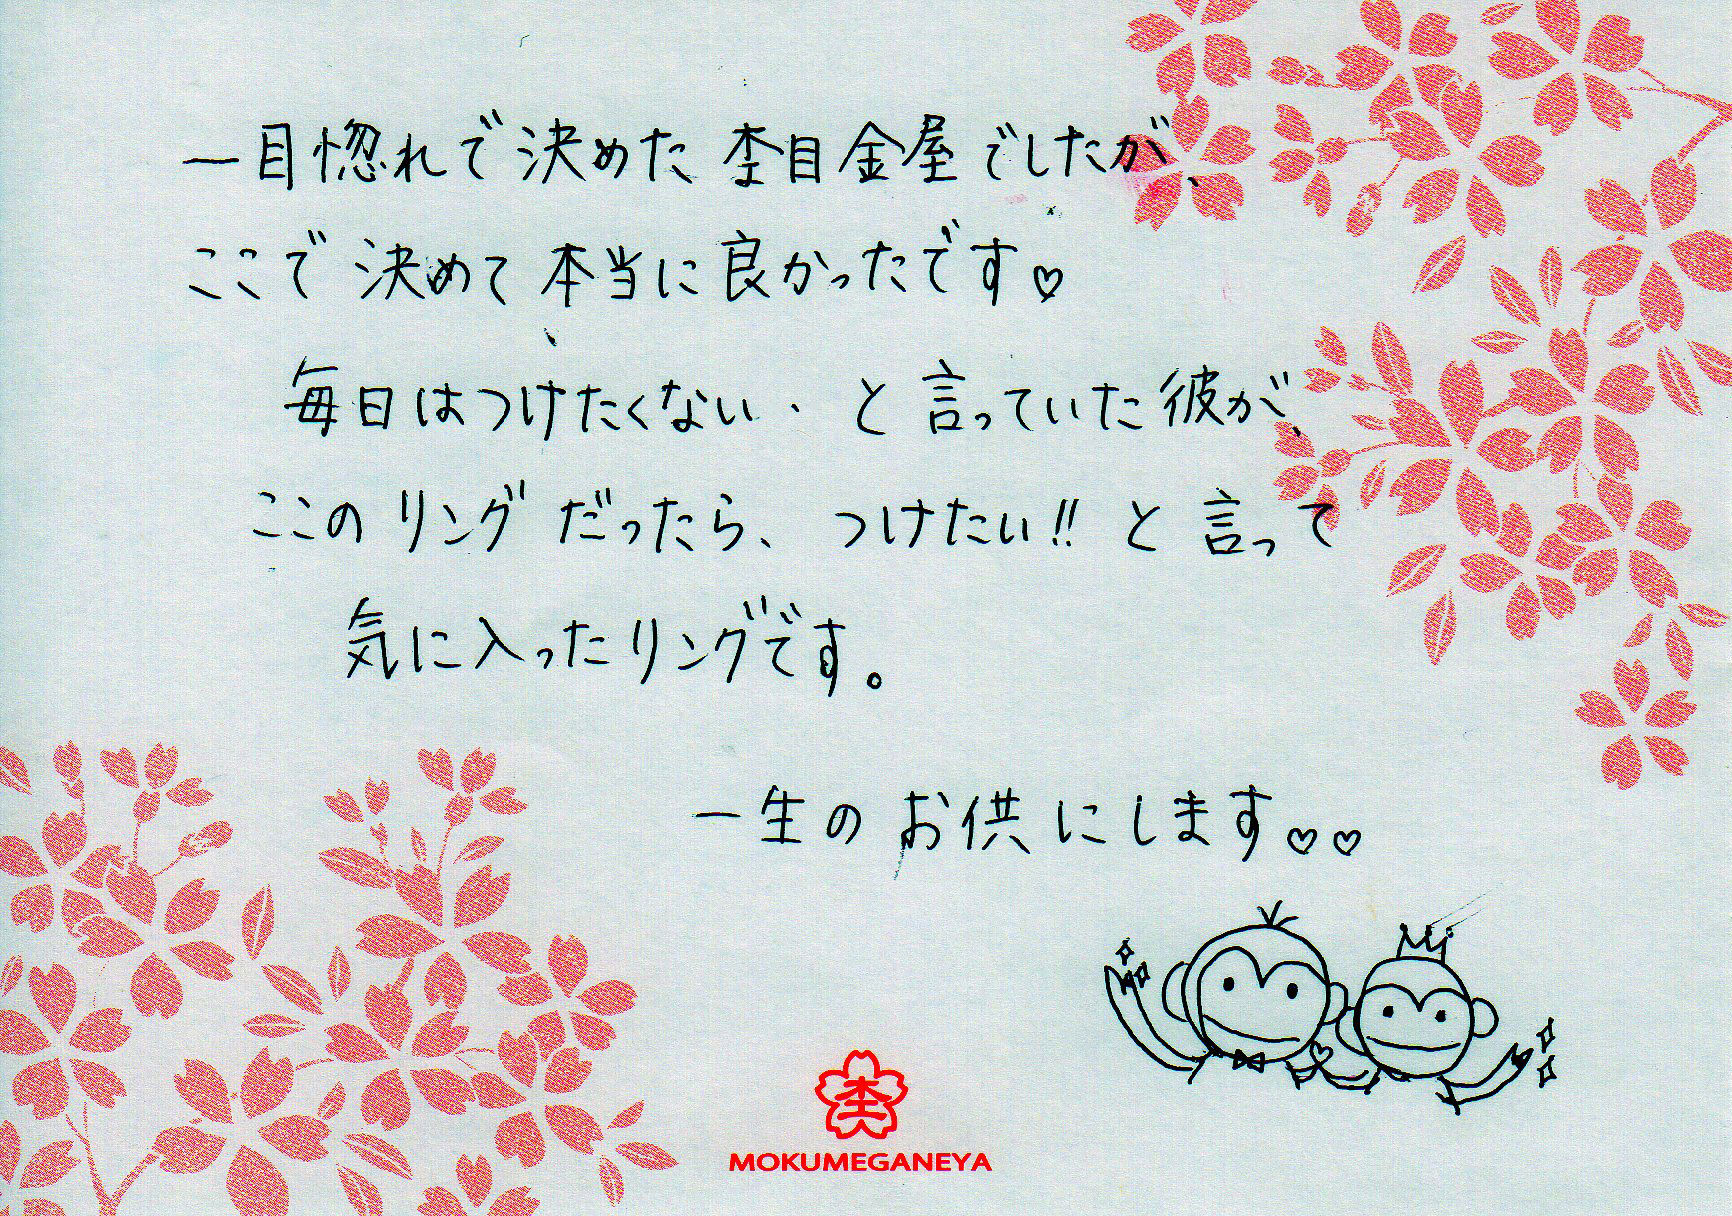 一目惚れで決めた杢目金屋でしたが、
ここで決めて本当に良かったです♡
毎日はつけたくない・と言っていた彼が、
ここのリングだったら、つけたい!!と言って
気に入ったリングです。
一生のお供にします♡♡
杢
MOKUMEGANEYA